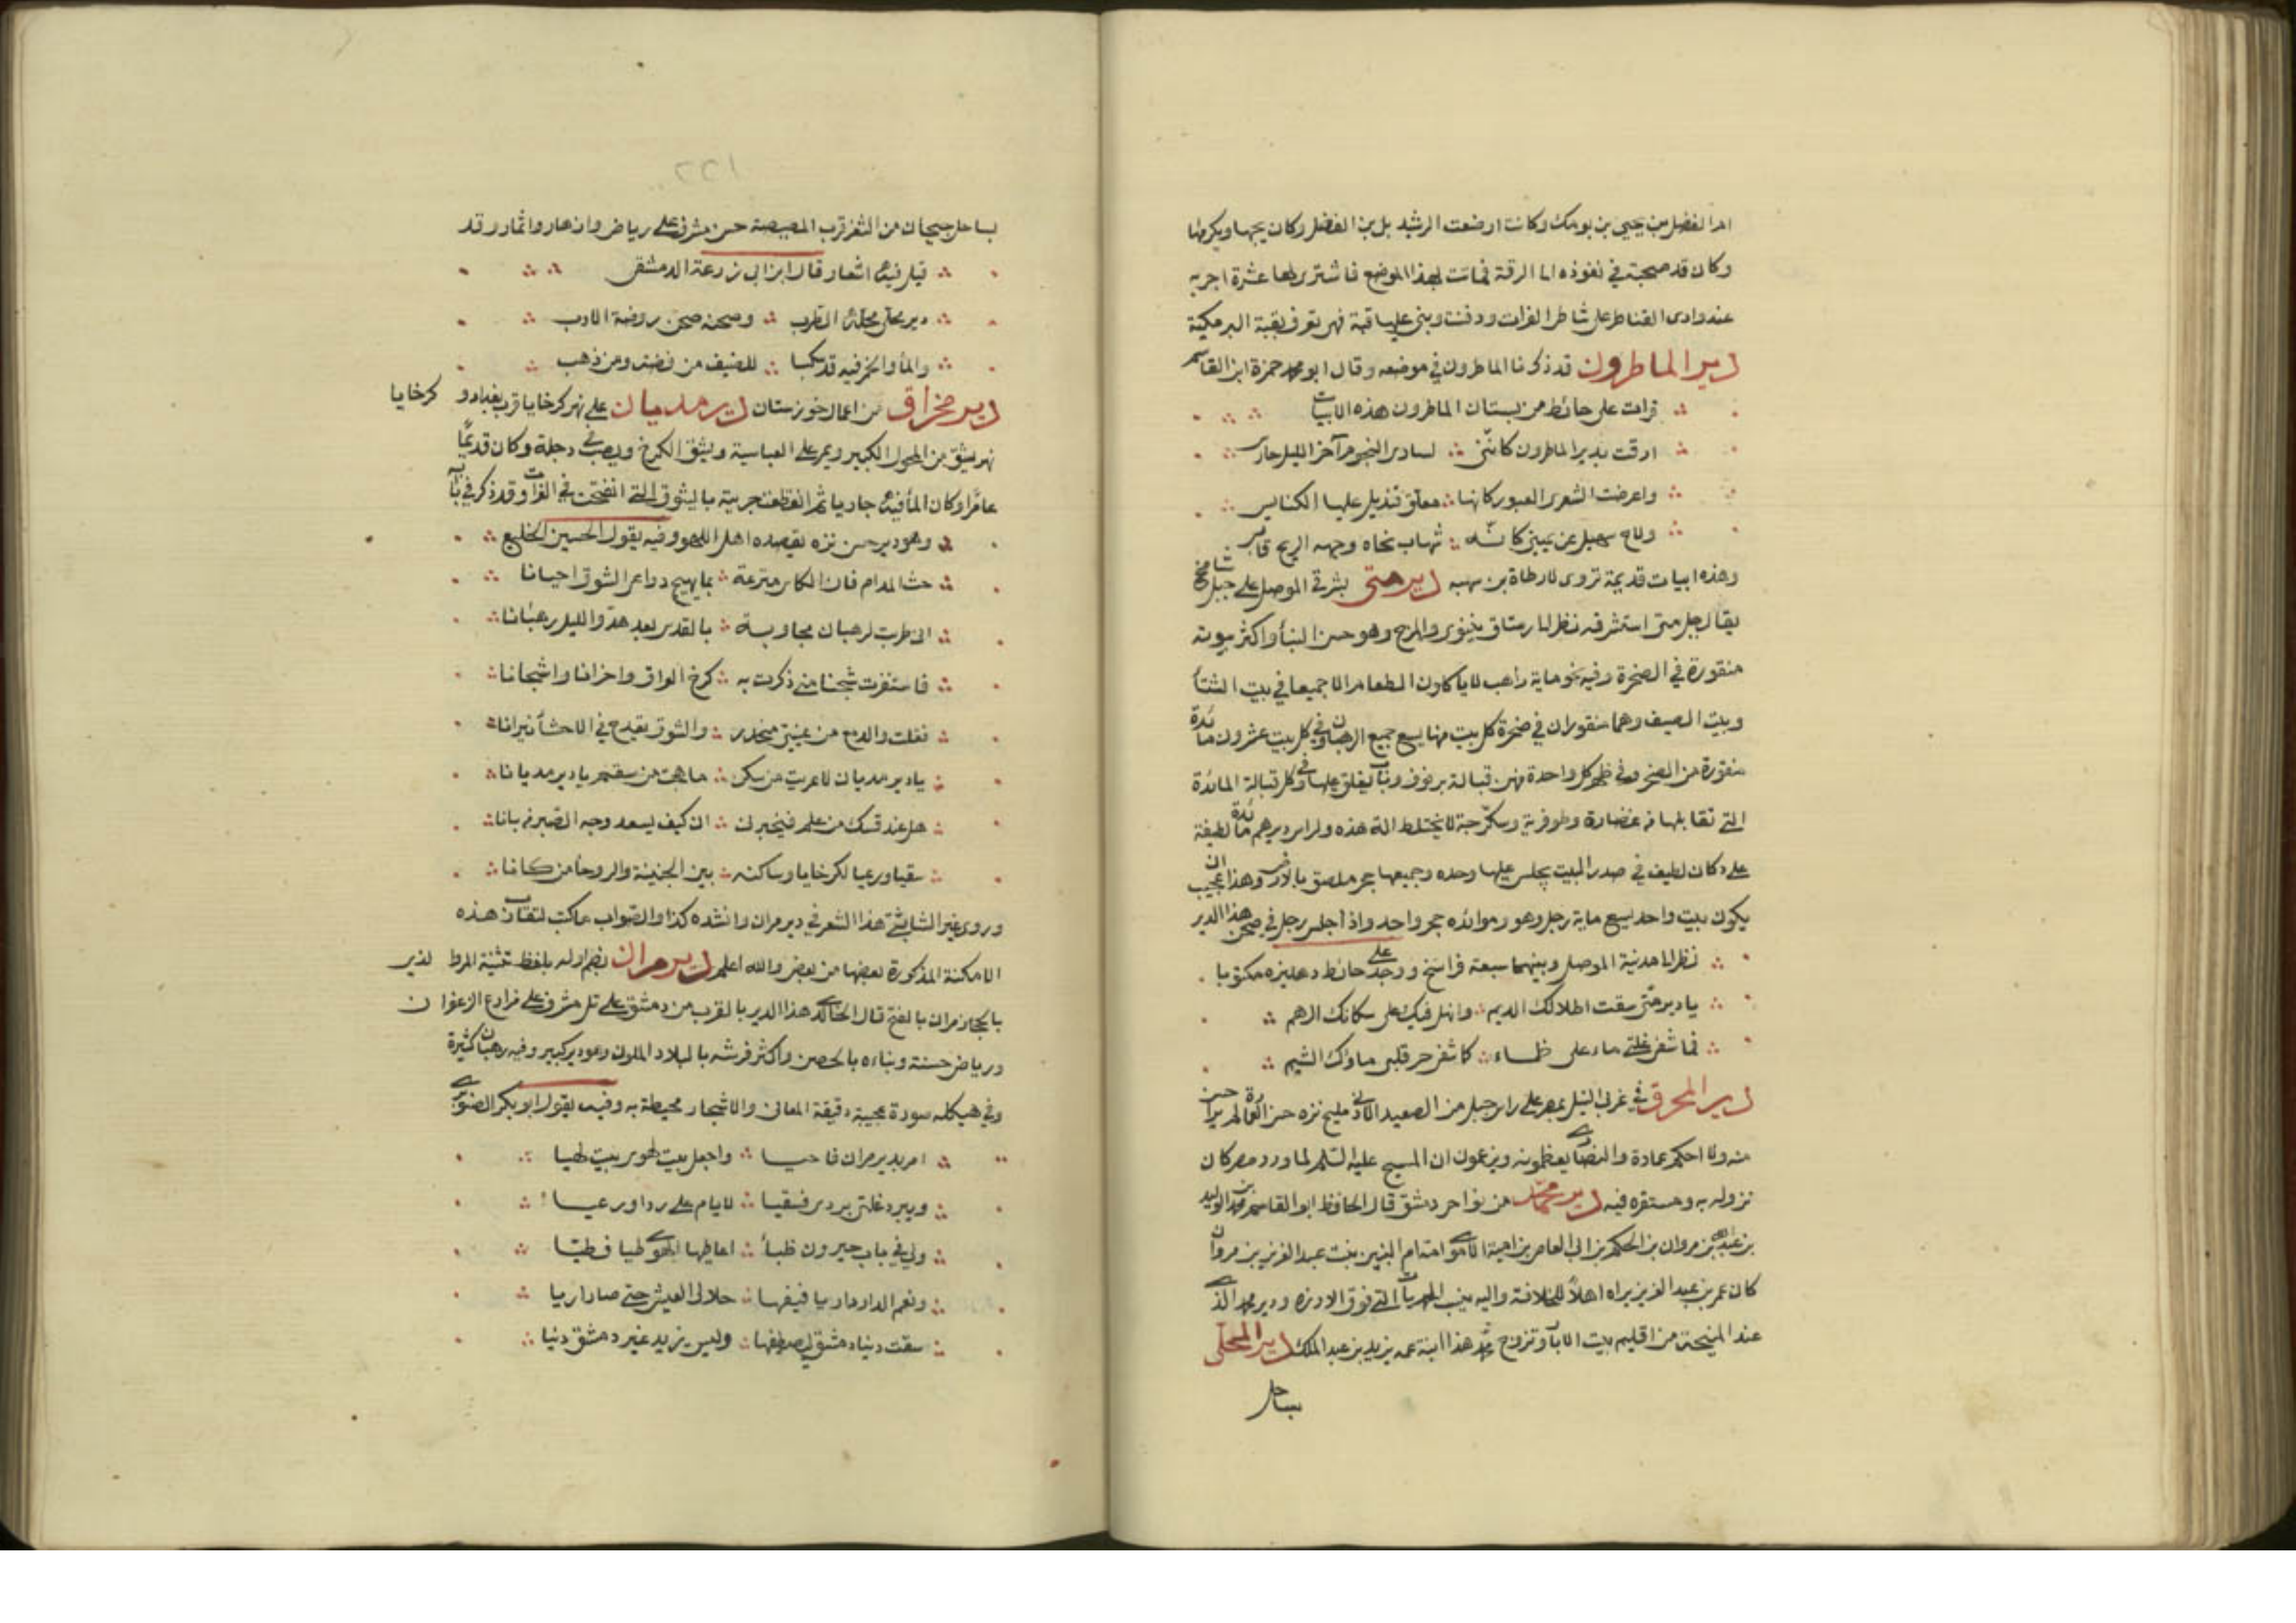 ام الفضل بن يحيى بن برمك وكانت ارضعت الرشيد بلبن الفضل وكان يحبها ويكرمها
وكان قد صحبته في نفوذه الى الرقة فماتت بهذا الموضع فاشترى لها عشرة اجربه
عند وادى القناطر على شاطى الفرات ودفنت وبنى عليها قبة فهى تعرف بقبة البرمكية
دير الماطرون قد ذكرنا الماطرون في موضعه وقال ابو محمد حمزة ابن القاسم
قرات على حائط من بستان الماطرون هذه الابيات
ارقت بدير الماطرون كاننى لسارى النجوم آخر الليل حارس
واعرضت الشعرى العبور كانها معلق قنديل عليها الكنايس
ولاح سهيل عن يمينى كانه شهاب نحاه وجهه الريح قابس
وهذه ابيات قديمة تروى لارطاة بن سهيه دير متى بشرقى الموصل على جبل شامخ
يقال جبل متى استشرفه نظر الى رستاق نينوى والمرج وهو حسن البنأ واكثر بيوته
منقورة في الصخرة وفيه نحو ماية راهب لا ياكلون الطعام الا جميعا في بيت الشتأ
وبيت الصيف وهما منقوران في صخرة كل بيت منها يسع جميع الرهبان وفي كل بيت عشرون مائدة
منقورة من الصخر وفي ظهر كل واحدة منهن قبالة برفوف وباب يغلق عليها وفي كل قبالة المائدة
التي تقابلها من غضارة وطوفرية وسكرجة لا تختلط الة هذه ولراس ديرهم مائدة لطيفة
على دكان لطيف في صدر البيت يجلس عليها وحده وجميعها حجر ملصق بالارض وهذا عجيب ان
يكون بيت واحد يسع ماية رجل وهو وموائده حجر واحد واذا جلس رجل في صحن هذا الدير
نظر الى مدينة الموصل وبينهما سبعة فراسخ ووجد على حائط دهليزه مكتوبا
يا دير متى سقت اطلالك الديم وانهل فيك على سكانك الرهم
فما شفى غلتى ماء على ظماء كما شفى حر قلبى ماؤك الشيم
دير المحرق في غربى النيل بمصر على راس جبل من الصعيد الادنى مليح نزه حسن العمارة لم ير احسن
منه ولا احكم عمادة والنصارى يعظمونه ويزعمون ان المسيح عليه السلم لما ورد مصر كان
نزوله به ومستقره فيه دير محمد من نواحى دمشق قال الحافظ ابو القاسم محمد بن الوليد
بن عبد الملك بن مروان بن الحكم بن ابى العاص بن امية الاموى امه ام البنين بنت عبد العزيز بن مروان
كان عمر بن عبد العزيز يراه اهلا للخلافة واليه ينسب المحمديات التي فوق الارزه ودير محمد الذى
عند المنيحة من اقليم بيت الابآر وتزوج محمد هذا ابنة عمه يزيد بن عبد الملك دير المحلى
بساحل
٢٢١
بساحل جيحان من الثغر قرب المصيصة حسن مشرف على رياض وازهار واثمار وقد
قيل فيه اشعار قال ابن ابى زرعة الدمشقى
دير محلى محلة الطرب وصحنه صحن روضة الادب
والمأ والخمر فيه قد سكبا للضيف من فضة ومن ذهب
دير مخراق من اعمال خوزستان دير مديان على نهر كرخايا قرب بغداد و كرخايا
نهر يشق من المحول الكبير ويمر على العباسية ويشق الكرخ ويصب في دجلة وكان قديمًا
عامرا وكان المأ فيه جاريا ثم انقطعت جريته بالبثوق التى انفتحت في الفرات وقد ذكر في بابه
وهو دير حسن نزه يقصده اهل اللهو وفيه يقول الحسين الخليع
حث المدام فان الكاس مترعة بما يهيج دواعى الشوق احيانا
انى طربت لرهبان مجاوبة بالقدس بعد هدو الليل رهبانا
فاستنفرت شجنا منى ذكرت به كرخ العراق واحزانا واشجانا
فقلت والدمع من عينى منحدر والشوق يقدح في الاحشأ نيرانا
يا دير مديان لا عريت من سكن ما هجت من سقم يا دير مديانا
هل عند قسك من علم فيخبرنى ان كيف يسعد وجه الصبر من بانا
سقيا ورعيا لكرخايا وساكنه بين الجنينة والروحأ من كانا
وروى غير الشابشتى هذا الشعر في دير مران وانشده كذا والصواب ما كتب لتقارب هذه
الامكنة المذكورة بعضها من بعض والله اعلم دير مران بضم اوله بلفظ تثنية المر والذى
بالحجاز مران بالفتح قال الخالدى هذا الدير بالقرب من دمشق على تل مشرف على مزارع الزعفران
ورياض حسنة وبناءه بالحصى واكثر فرشه بالبلاد الملون وهو دير كبير وفيه رهبان كثيرة
وفي هيكله صورة عجيبة دقيقة المعانى والاشجار محيطة به وفيه يقول ابو بكر الصنوبرى
امر بدير مران فاحيا واجعل بيت لهوى بيت لهيا
ويبرد غلتى بردى فسقيا لايام على بردا ورعيا
ولى في باب جيرون ظبأ اعاطيها الهوى ظبيا فظبيا
ونعم الدار داريا ففيها حلا لى العيش حتى صار اريا
سقت دنيا دمشق ليصطفيها وليس يزيد غير دمشق دنيا